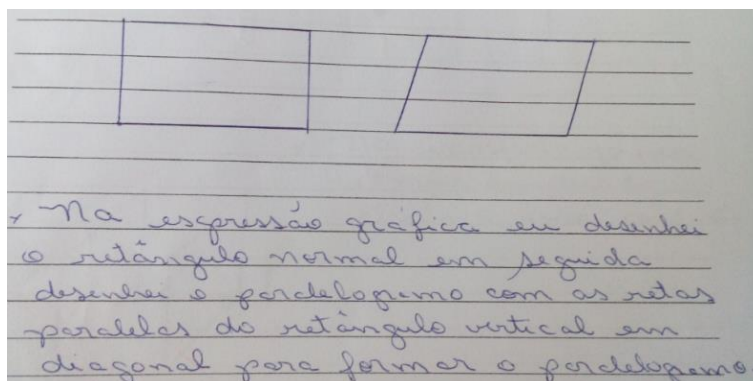 Na expressão gráfica eu desenhei
o retângulo normal em seguida
desenhei o pardelogramo com as retas
paralelas do retângulo vertical em
diagonal para formar o pardelogramo